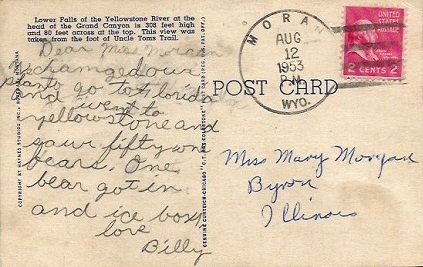 Lower Falls of the Yellowstone River at the
head of the Grand Canyon is 308 feet high
and 80 feet across at the top. This view was
taken from the foot of Uncle Toms Trail.
Dear Miss Morgan
I changed our
plans to go to Florida
and went to
yellowstone and
saw fifty won
bears. One
bear got in
and ice box
love
Billy
COPYRIGHT BY HAYNES STUDIOS INC.
GENUINE CURTEICH-CHICAGO
POST CARD
MORAN
AUG
12
1953
WYO.
UNITED STATES
POSTAGE
2 CENTS 2
Miss Mary Morgan
Byron
Illinois